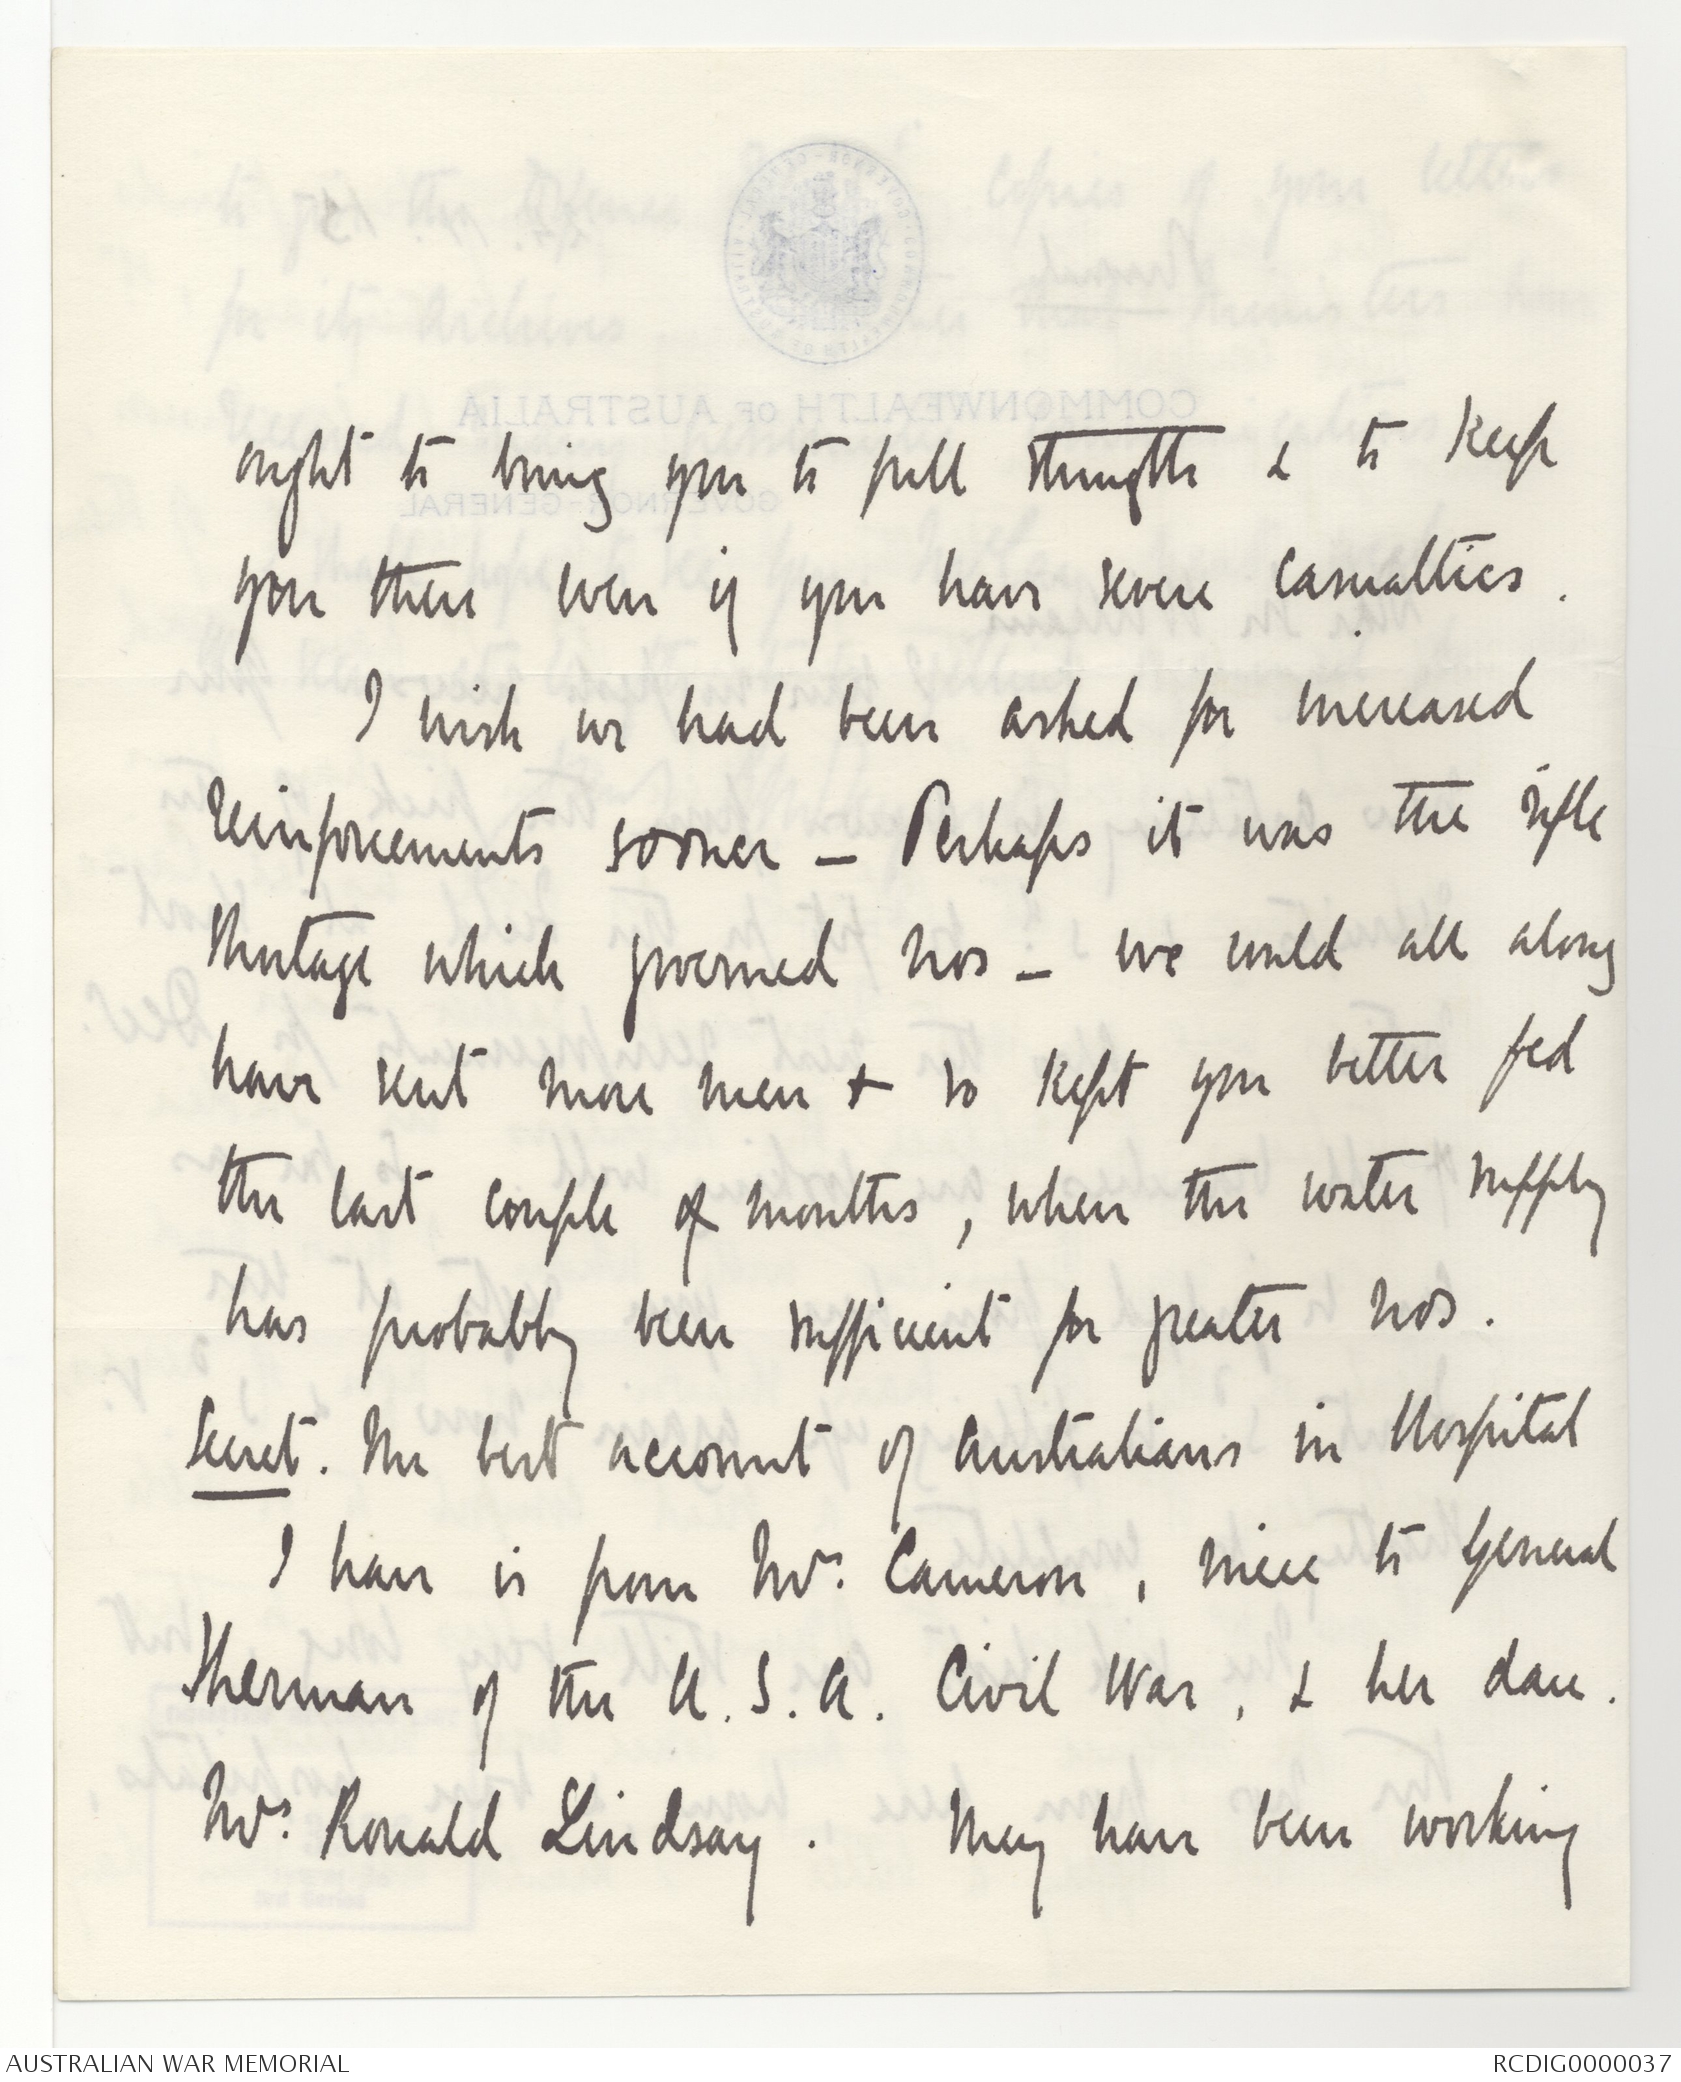 ought to bring you to full strength & to keep
you there even if you have severe casualties.
I wish we had been asked for increased
reinforcements sooner – Perhaps it was the rifle
shortage which governed nos – we could all along
have sent more men + so kept you better fed
the last couple of months, when the water supply
has probably been sufficient for greater nos.
Secret. The best account of Australians in Hospital
I have is from Mrs. Cameron, niece to General
Sherman of the U.S.A. Civil War, & her daur.
Mrs. Ronald Lindsay. They have been working
AUSTRALIAN WAR MEMORIAL
RCDIG0000037